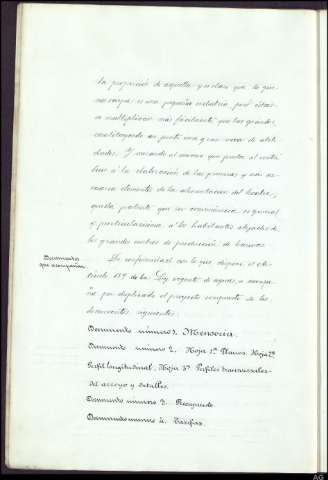 la proporción de aquella y es claro que lo que
no es una pequeña industria, para estas
a multiplicarse más fácilmente que las grandes,
constituyendo en junto una gran suma de utili
dades. Y uniendo al mismo que puede al contri
buir á la elaboración de las primeras y más ne
cesarias elementos de la alimentación del hombre,
queda patente que su conveniencia es general
y particularísima á los habitantes alejados de
los grandes centros de producción de harinas.
Documentos
que acompañan.
De conformidad con lo que dispone el ar
tículo 189 de la Ley vigente de aguas, se acompa
ña por duplicado el proyecto compuesto de los
documentos siguientes:
Documento número 1. Memoria.
Documento número 2. Hoja 1ª Planos. Hoja 2ª
Perfil longitudinal. Hoja 3ª Perfiles transversales
del arroyo y detalles.
Documento número 3. Presupuesto.
Documento número 4. Tarifas.
AG